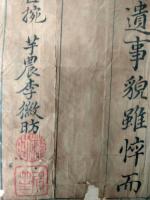 遺事貌雖悴而
芋農李徽昉